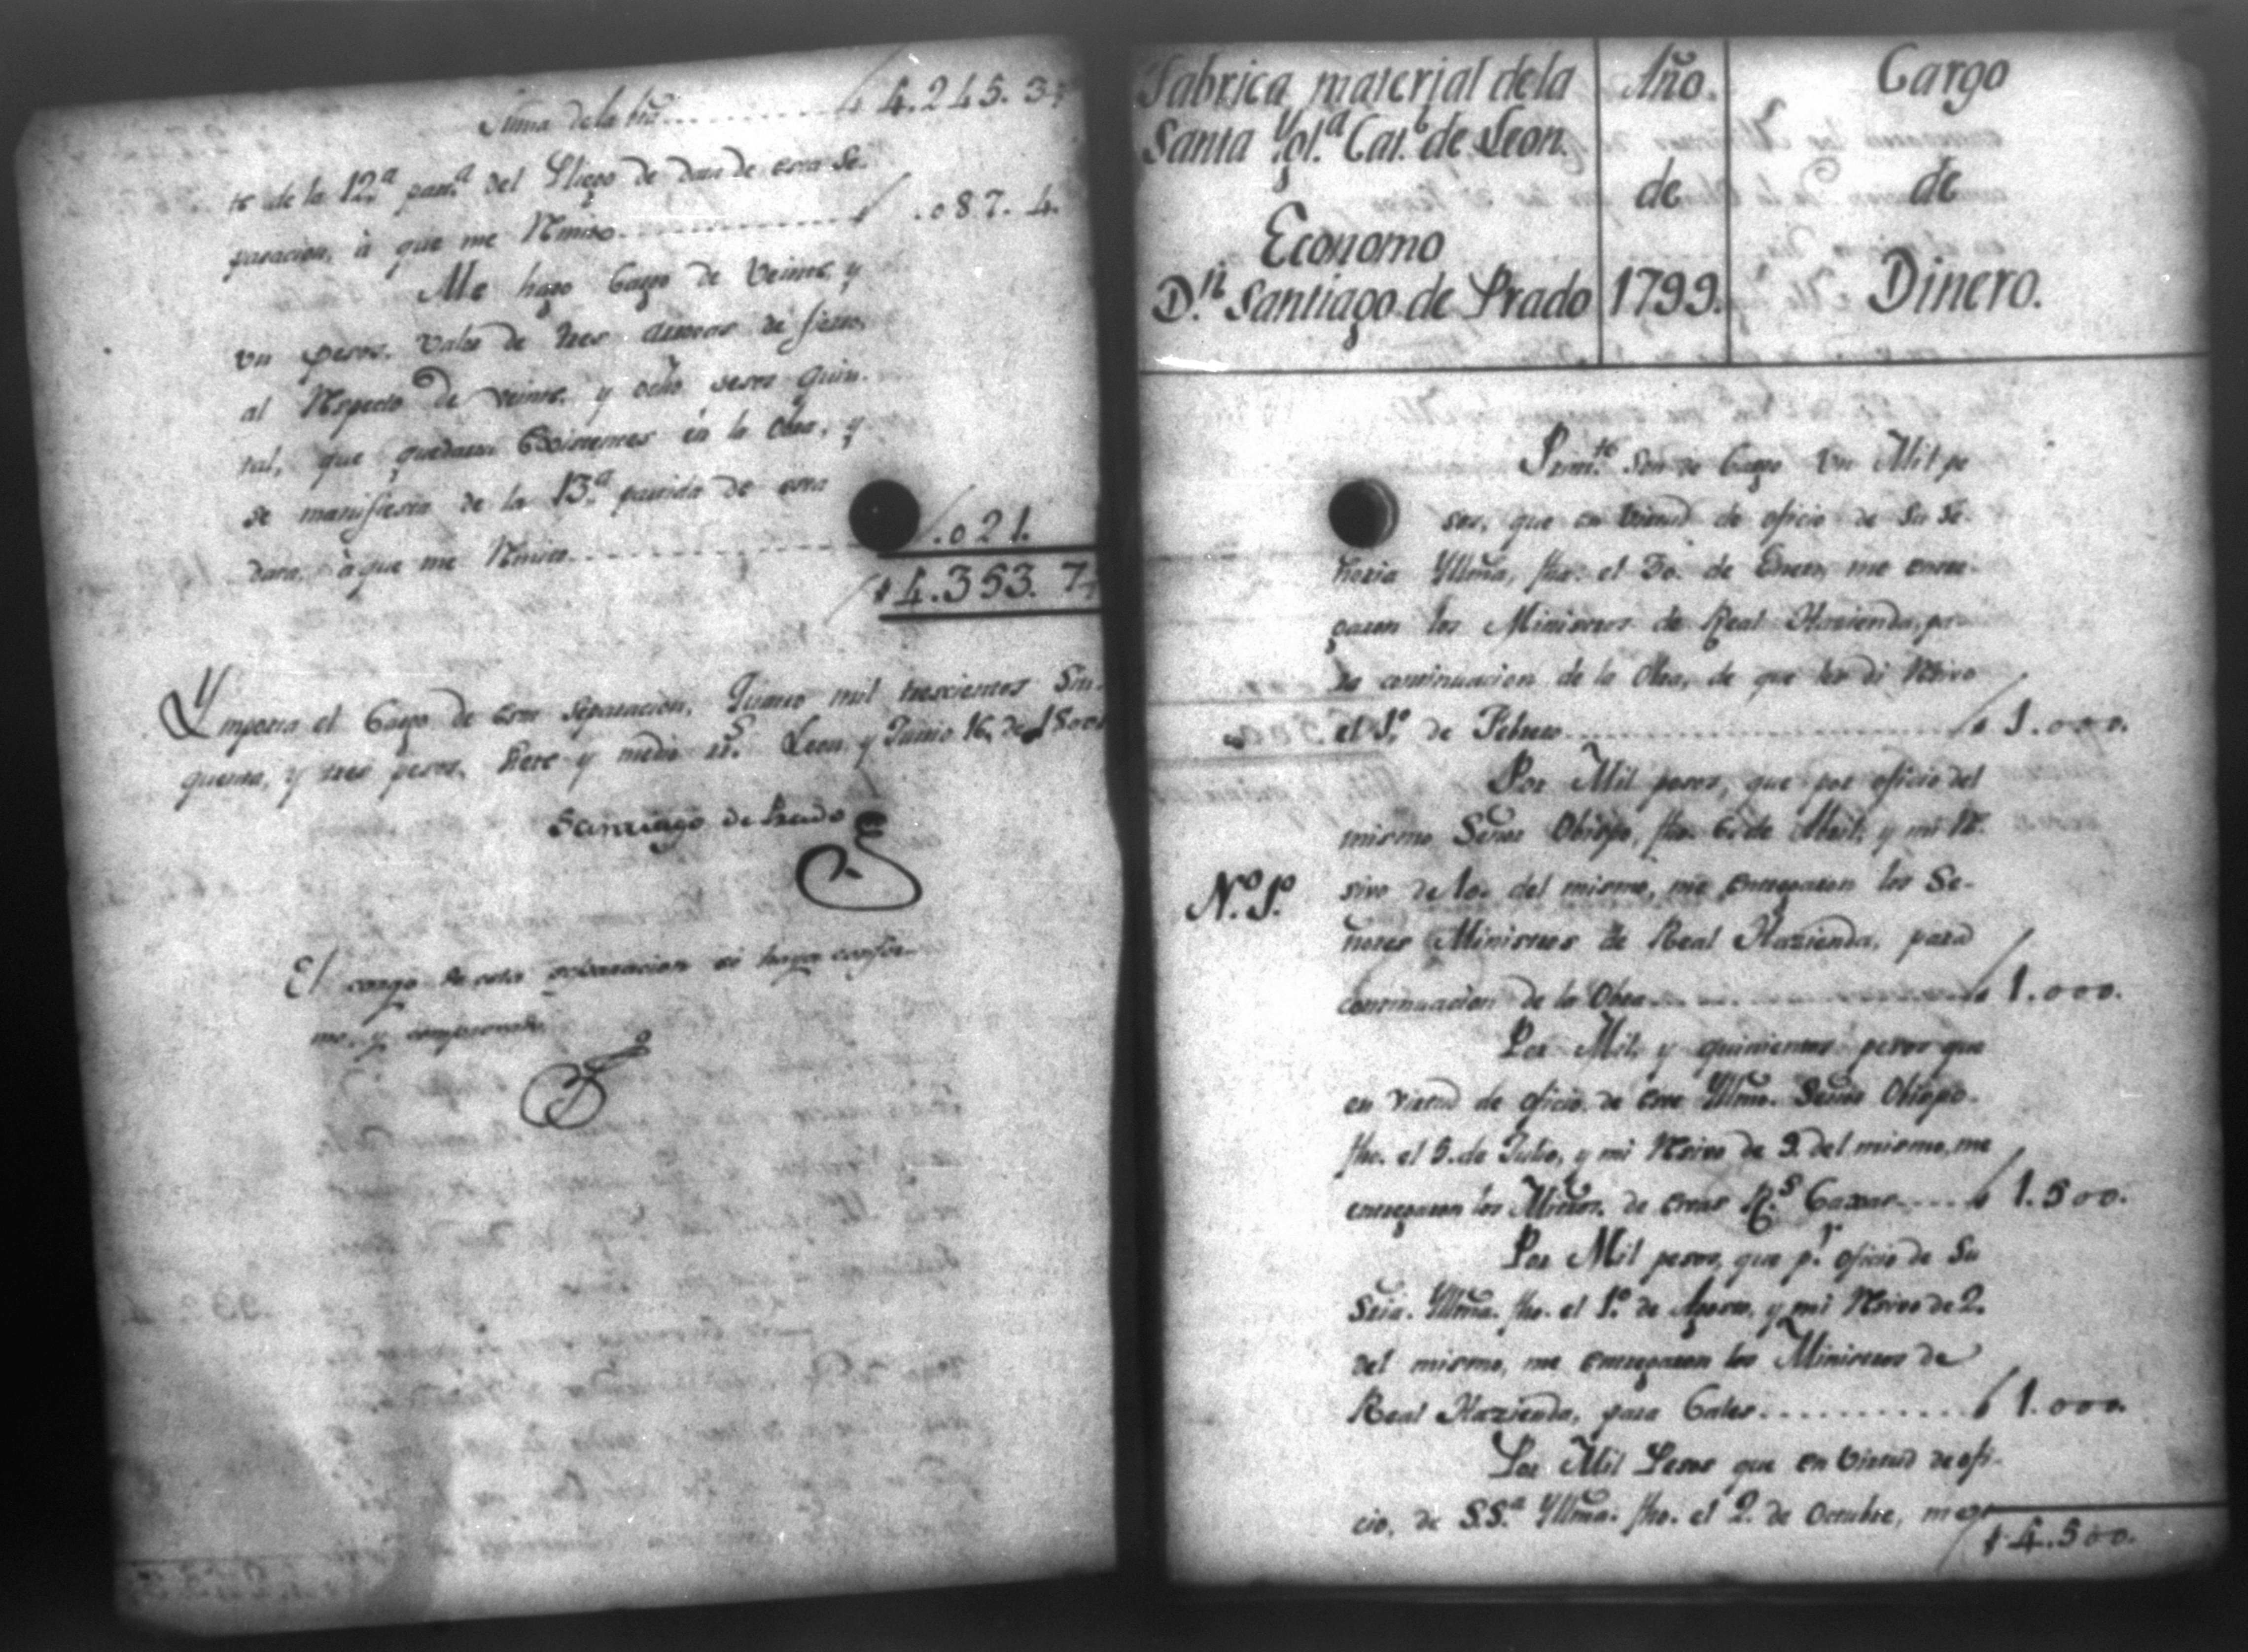 Suma de la bta......... $ 4.245.3½
te de la 12.ª part.ª del Pliego de data de esta Se-
paracion, à que me Rmito............ $ .087.4.
Me hago Cargo de Veinte, y
un pesos, valor de tres de fierro,
al Rspecto de veinte, y ocho pesos quin-
tal, que quedaron Existentes en la Obra, y
se manifiesta de la 13.ª partida de esta
data, à que me Rmito............ .021.
$ 4.353.7½
Ymporta el Cargo de esta Separacion, Quatro mil trescientos Sin-
quenta, y tres pesos, Siete y medio rr.s Leon y Junio 16, de 1800.
Santiago de Prado
El cargo de esta separacion se haya confor-
me, y comprovado.
Fabrica material dela
Santa Ygl.ª Cat.l de Leon.
Economo
D.n Santiago de Prado
Año.
de
1799.
Cargo
de
Dinero.
Prim.te Son de Cargo Un Mil pe
sos, que en Virtud de oficio de Su Se-
ñoria Yllma, fho. el 30. de Enero, me entre-
garon los Ministros de Real Hazienda, pa-
ra continuacion de la Obra, de que les di Rsivo
el 1.º de Febrero............ $ 1.000.
Por Mil pesos, que por oficio del
mismo Señor Obispo, fho. 6. de Abril, y mi R-
N.º 1.º
sivo de 10. del mismo, me entregaron los Se-
ñores Ministros de Real Hazienda, para
continuacion de la Obra............ $ 1.000.
Por Mil, y quinientos pesos que
en virtud de oficio, de este Yllmo. Señor Obispo.
fho. el 5. de Julio, y mi Rsivo de 9. del mismo, me
entregaron los Mitros. de estas R.s Caxas..... $ 1.500.
Por Mil pesos, que p.r oficio de Su
Sria. Yllma. fho. el 1.º de Agosto, y mi Rsivo de 2.
del mismo, me entregaron los Ministros de
Real Hazienda, para Cales........... $ 1.000.
Por Mil Pesos que en Virtud de ofi-
cio, de S.S.ª Yllma. fho. el 2. de Octubre, me
$ 4.500.